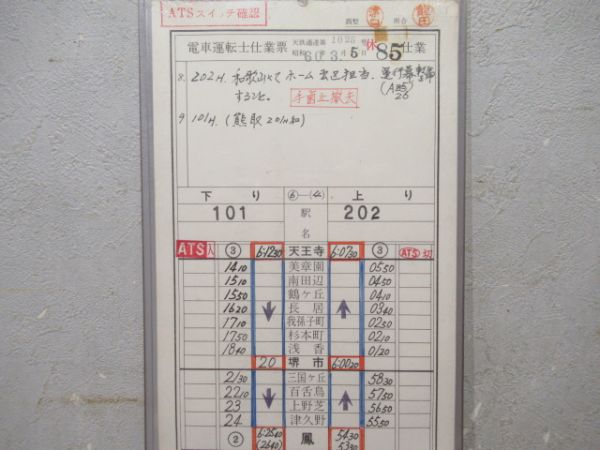 ATSスイッチ確認
電車運転士仕業票
天鉄達第 1025 号
昭和 60.3.5 休 85 仕業
8. 202H. 和歌山にて ホーム 出区担当.
すること。
手歯止撤去
9 101H. (熊取 201H和)
下り ⑥—(4) 上り
101 駅名 202
ATS入 ③ 6:1230 天王寺 6:0730 ③ ATS切
1410 美章園 0550
1510 南田辺 0450
1550 鶴ケ丘 0410
1620 長居 0340
1710 我孫子町 0250
1750 杉本町 0210
1840 浅香 0120
20 堺市 6:0020
2130 三国ケ丘 5830
2210 百舌鳥 5750
23 上野芝 5650
24 津久野 5550
② 6:2540 鳳 5430
(2640) 5330